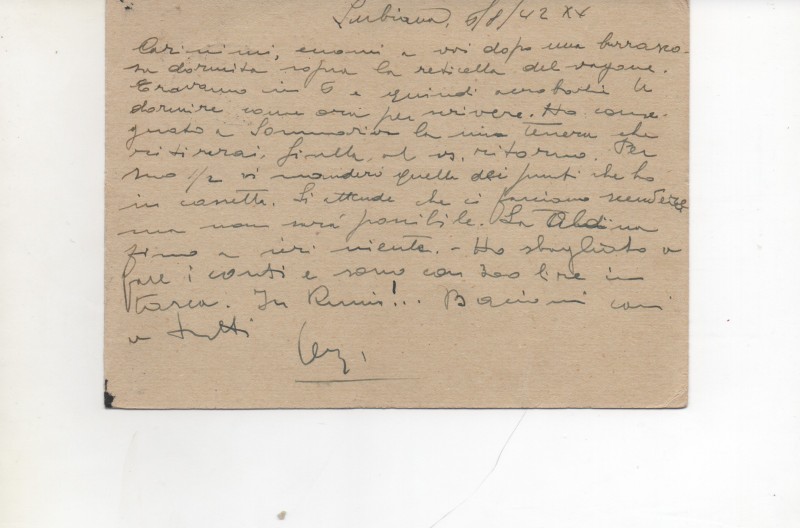 Lubiana, 5/8/42 XX
Carissimi, eccomi a voi dopo una burrasco-
sa dormita sopra la reticella del vagone.
Eravamo in 5 e quindi acrobazie
dormire come ora per scrivere. Ho conse-
gnato a Sommariva la mia tenera che
ritirerai, Ginetta, al vs. ritorno. Per
suo 1/2 vi manderò quella dei punti che ho
in cassetta. Si attende che ci facciano scendere
ma non sarà possibile. La Aldina
fino a ieri niente. - Ho sbagliato a
fare i conti e sono con lire in
tasca. In Russia!.. Bacioni cari
a tutti